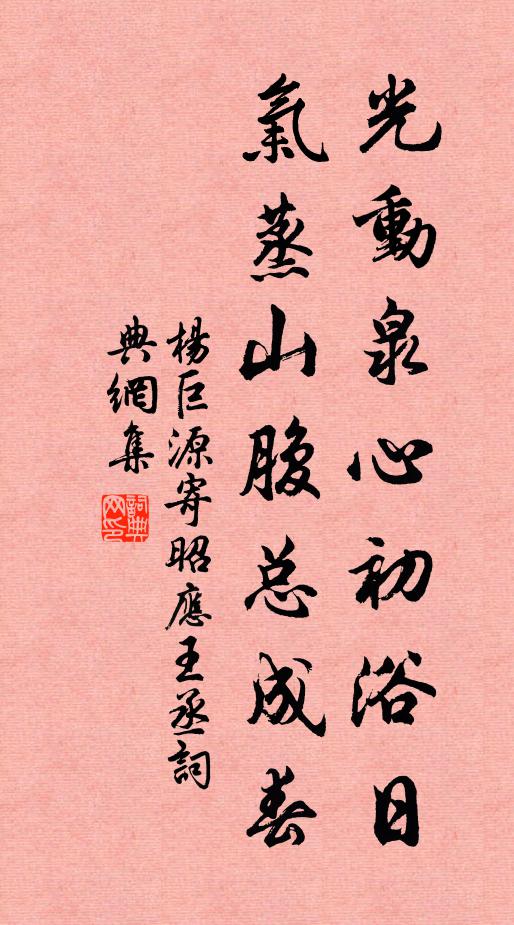 光動泉心初浴日
氣蒸山腹总成春
楊巨源寄昭應王丞詞
典網集
詞典
网印